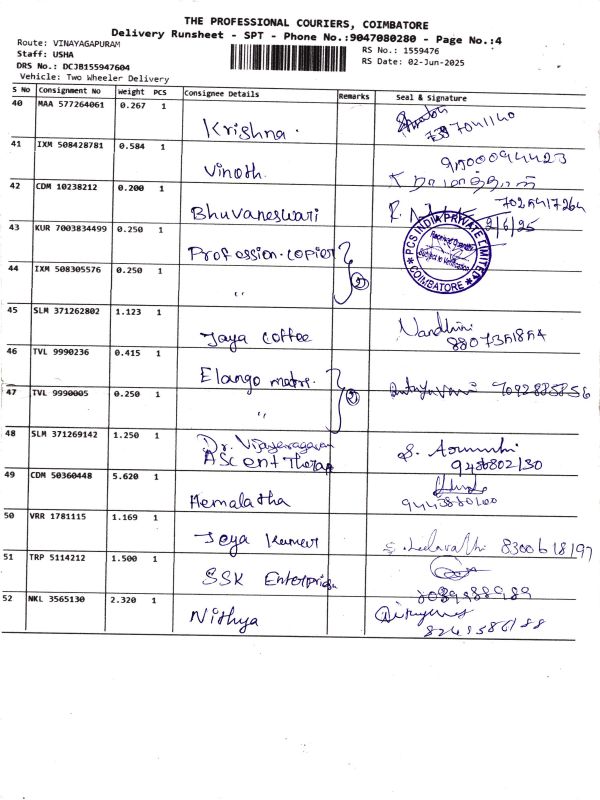 THE PROFESSIONAL COURIERS, COIMBATORE
Delivery Runsheet - SPT - Phone No.:9047080280 - Page No.:4
Route: VINAYAGAPURAM
RS No.: 1559476
Staff: USHA
RS Date: 02-Jun-2025
DRS No.: DCJB155947604
Vehicle: Two Wheeler Delivery
S No Consignment No Weight PCS Consignee Details Remarks Seal & Signature
40 MAA 577264061 0.267 1
Krishna.
41 IXM 508428781 0.584 1
Vinoth.
42 CDM 10238212 0.200 1
Bhuvaneswari 7025417264
2/6/25
43 KUR 7003834499 0.250 1
Profession.copier
PCS INDIA PRIVATE LIMITED
Subject to Verification
COIMBATORE
44 IXM 508305576 0.250 1
" 2
45 SLM 371262802 1.123 1
Jaya Coffee Nandhini
8807351854
46 TVL 9990236 0.415 1
Elango mdrs.
47 TVL 9990005 0.250 1
7092885856
" 2
48 SLM 371269142 1.250 1
Dr. Vijayaragavan
Ascent Therap
49 CDM 50360448 5.620 1
Hemalatha
50 VRR 1781115 1.169 1
Jeya Kumar 8300618197
51 TRP 5114212 1.500 1
SSK Enterprise
52 NKL 3565130 2.320 1
Nithya